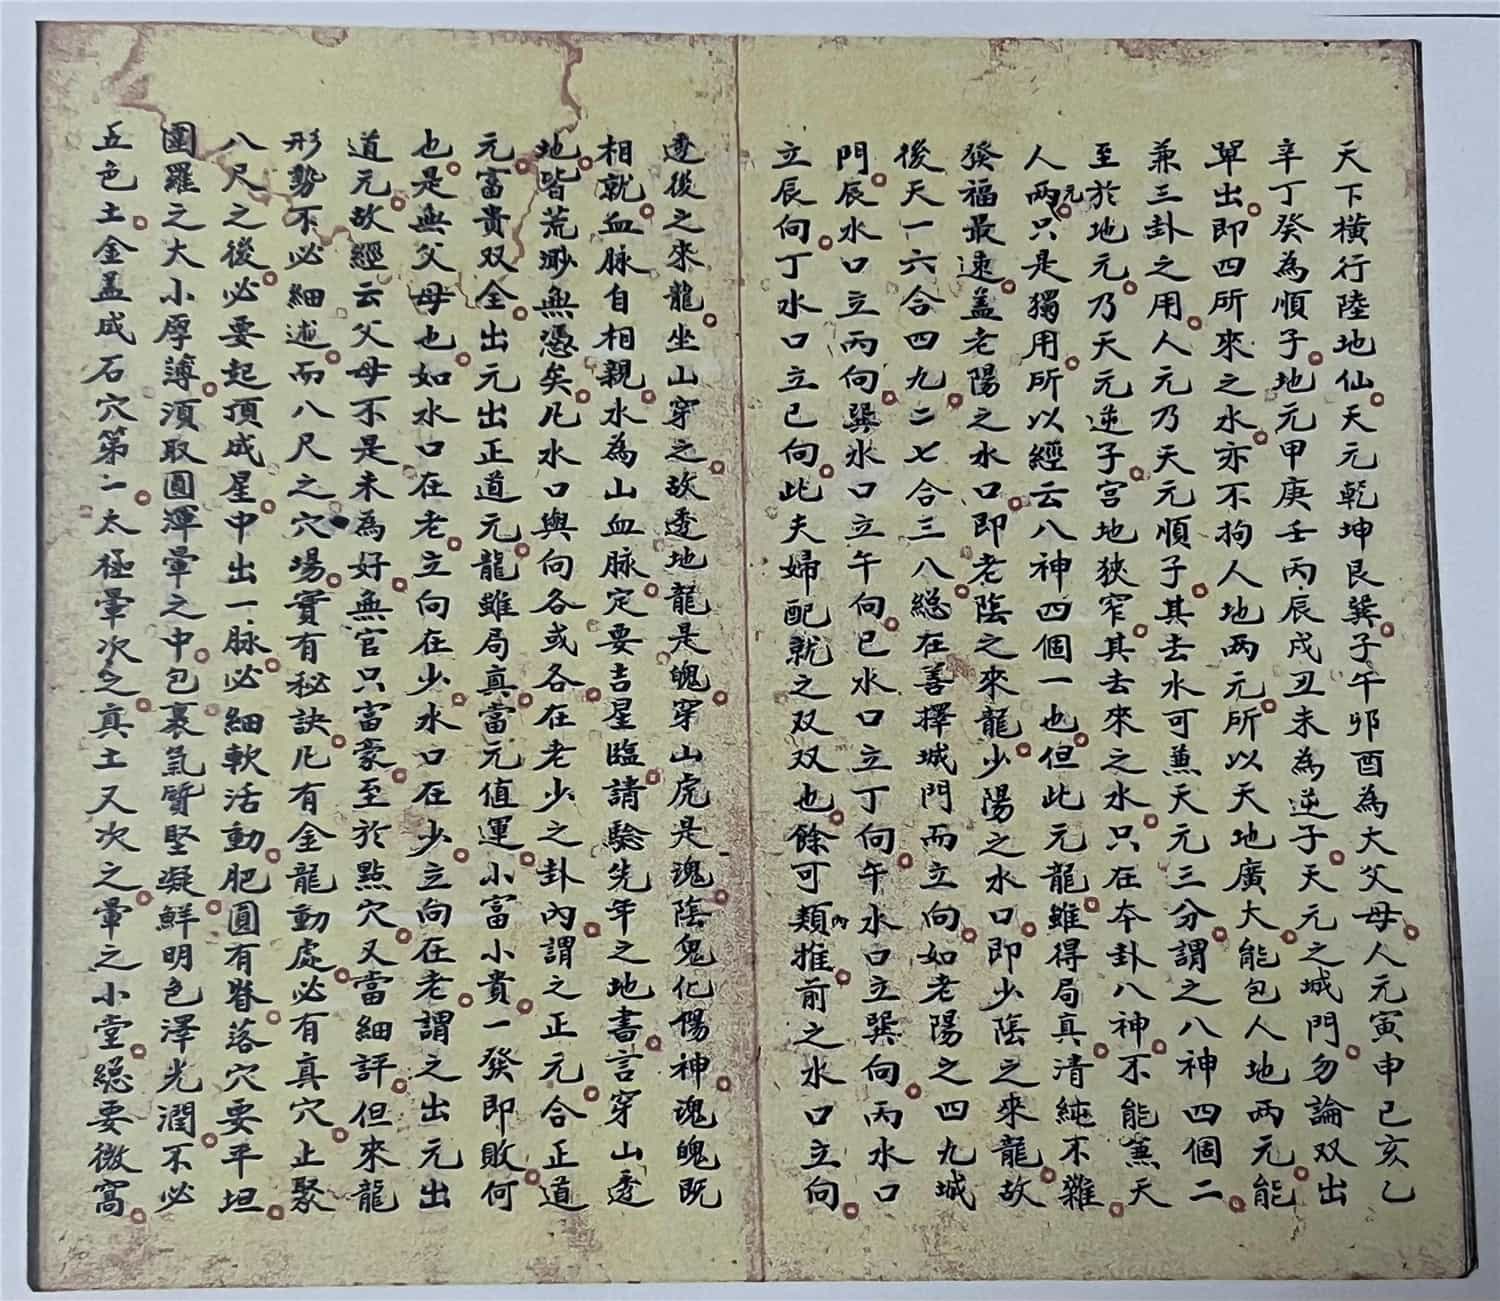 天下橫行陸地仙天元乾坤艮巽子午卯酉為大父母人元寅申巳亥乙
辛丁癸為順子地元甲庚壬丙辰戌丑未為逆子天元之城門勿論双出
單出即四所來之水亦不拘人地两元所以天地廣大能包人地两元能
兼三卦之用人元乃天元順子其去水可兼天元三分謂之八神四個二
至於地元乃天元逆子宮地狹窄其去來之水只在本卦八神不能兼天
人两元只是獨用所以經云八神四個一也但此元龍雖得局真清純不雜
發福最速盖老陽之水口即老陰之來龍少陽之水口即少陰之來龍故
後天一六合四九二七合三八總在善擇城門而立向如老陽之四九城
門辰水口立丙向巽水口立午向巳水口立丁向午水口立巽向丙水口
立辰向丁水口立巳向此夫婦配就之双双也餘可類推前之內水口立向
透後之來龍坐山穿之故透地龍是魄穿山虎是魂陰鬼化陽神魂魄既
相就血脉自相親水為山血脉定要吉星臨請驗先年之地書言穿山透
地皆荒渺無憑矣凡水口與向各或各在老少之卦內謂之正元合正道
元富貴双全出元出正道元龍雖局真當元值運小富小貴一發即敗何
也是無父母也如水口在老立向在少水口在少立向在老謂之出元出
道元故經云父母不是未為好無官只富豪至於點穴又當細評但來龍
形勢不必細述而八尺之穴場實有秘訣凡有金龍動處必有真穴止聚
八尺之後必要起頂成星中出一脉必細軟活動肥圓有脊落穴要平坦
圍羅之大小厚薄須取圓渾暈之中包裹氣質堅凝鮮明色澤光潤不必
五色土金盖成石穴第一太極暈次之真土又次之暈之小堂總要微窩